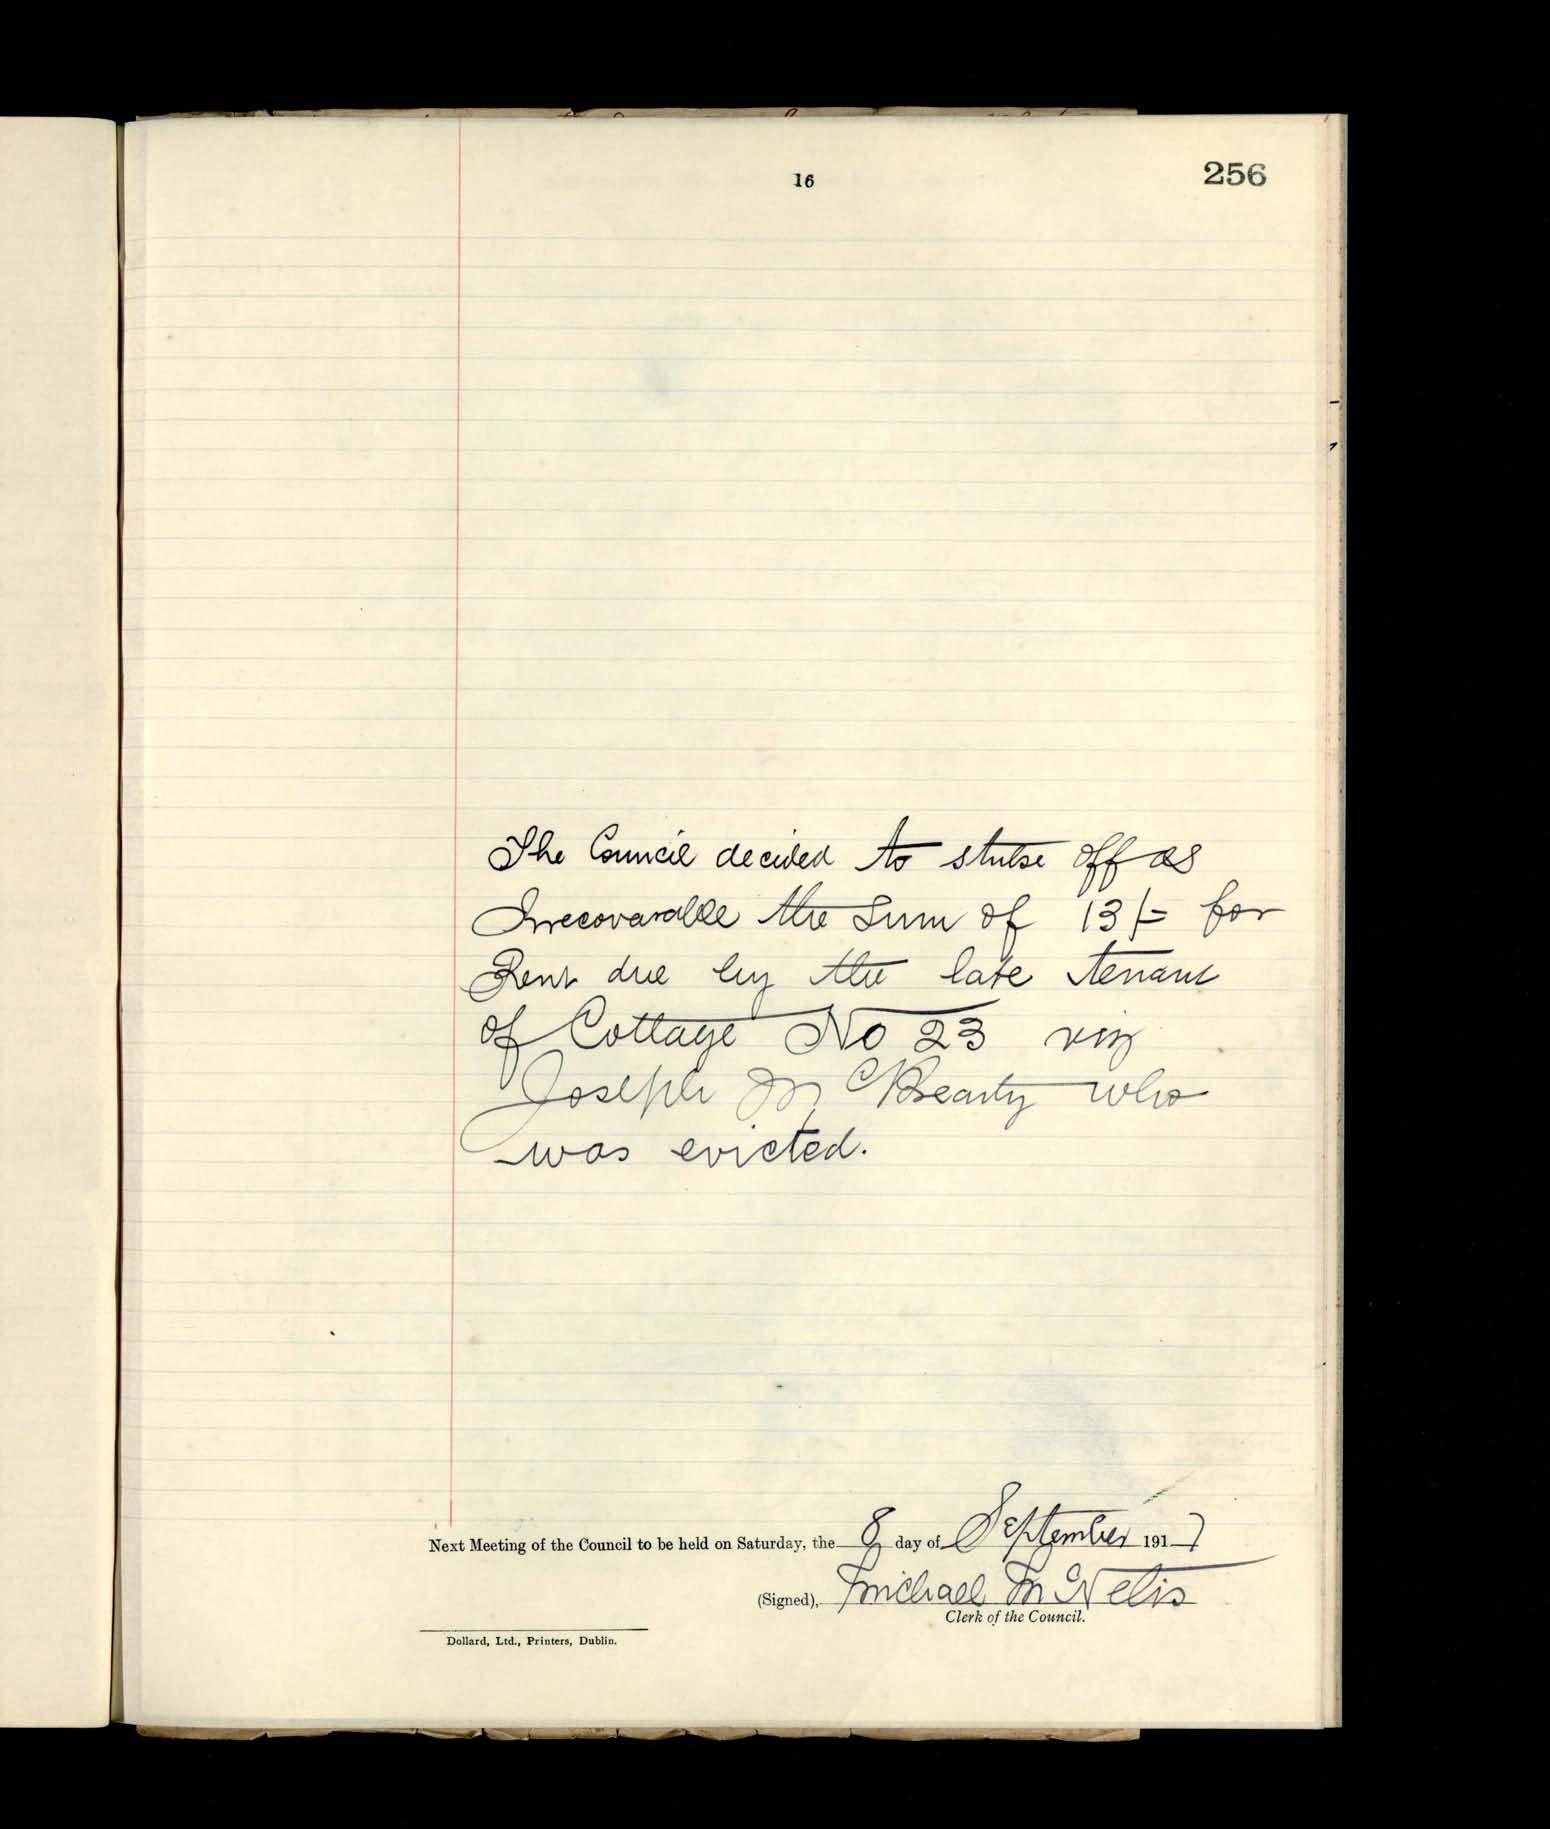 16
256
The Council decided to strike off as
Irrecovarable the sum of 13/= for
Rent due by the late tenant
of Cottage No 23 viz
Joseph McCready who
was evicted.
Next Meeting of the Council to be held on Saturday, the 8 day of September 1917
(Signed), Michael McNelis
Clerk of the Council.
Dollard, Ltd., Printers, Dublin.